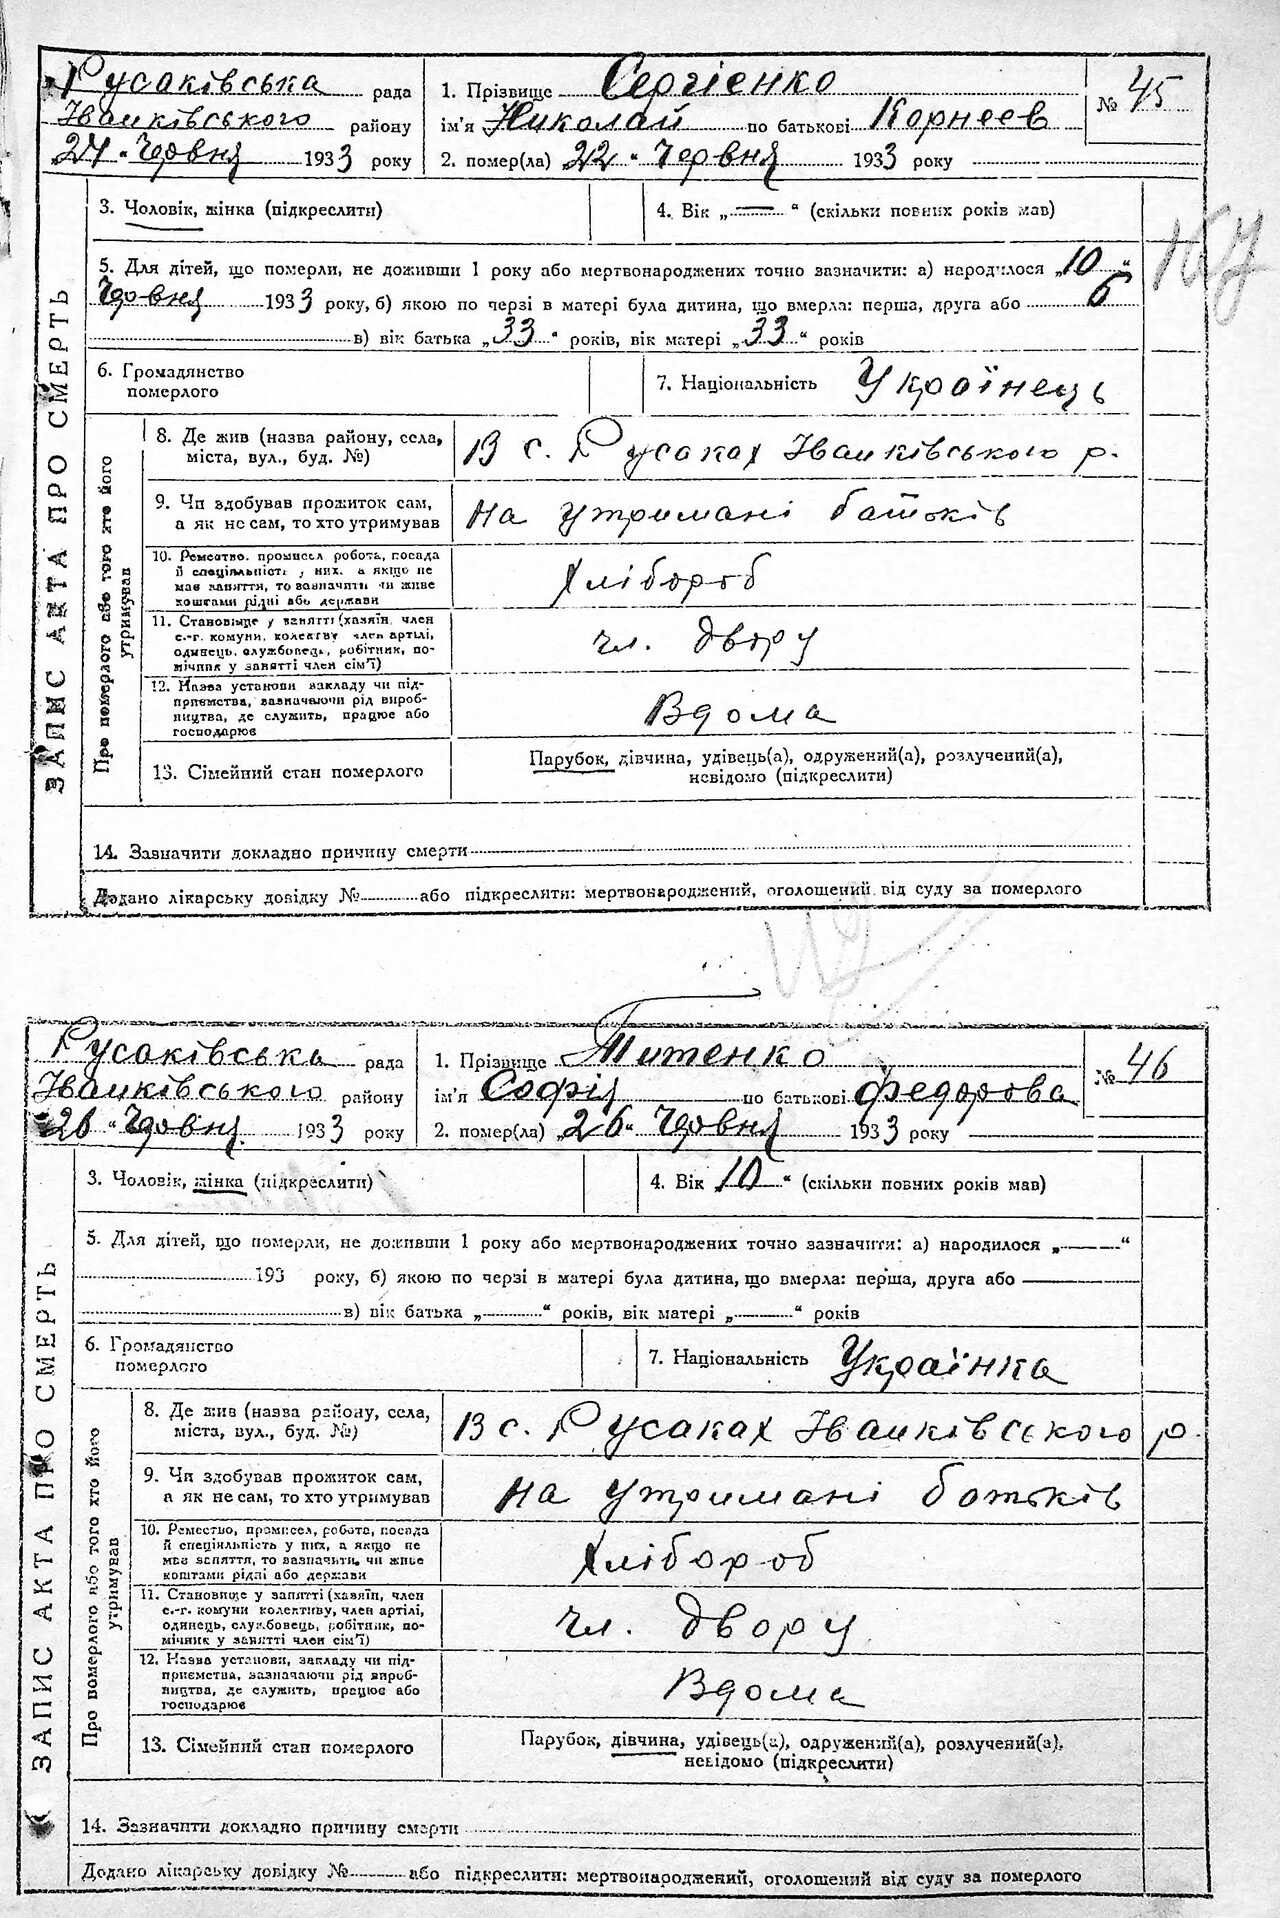 Русаківська рада
Іванківського району
24 „ Червня 1933 року
1. Прізвище Сергієнко
ім'я Николай по батькові Корнеев
2. помер(ла) 22 „ Червня 1933 року
№ 45
3. Чоловік, жінка (підкреслити)
4. Вік „—“ (скільки повних років мав)
167
ЗАПИС АКТА ПРО СМЕРТЬ
5. Для дітей, що померли, не доживши 1 року або мертвонароджених точно зазначити: а) народилося „10“
Червня 1933 року, б) якою по черзі в матері була дитина, що вмерла: перша, друга або 6
в) вік батька „33“ років, вік матері „33“ років
6. Громадянство
померлого
7. Національність Українець
Про померлого або того хто його
утримував
8. Де жив (назва району, села,
міста, вул., буд. №)
В с. Русаках Іванківського р.
9. Чи здобував прожиток сам,
а як не сам, то хто утримував
на утримані батьків
10. Ремество, промисел робота, посада
й спеціальність у них, а якщо не
має заняття, то зазначити чи живе
коштами рідні або держави
Хлібороб
11. Становище у занятті (хазяїн, член
с.-г. комуни, колективу член артілі,
одинець, службовець, робітник, по-
мічник у занятті член сім'ї)
чл. двору
12. Назва установи закладу чи під-
приємства, зазначаючи рід вироб-
ництва, де служить, працює або
господарює
Вдома
13. Сімейний стан померлого
Парубок, дівчина, удівець(а), одружений(а), розлучений(а),
невідомо (підкреслити)
14. Зазначити докладно причину смерти
Додано лікарську довідку № або підкреслити: мертвонароджений, оголошений від суду за померлого
Русаківська рада
Іванківського району
26 „ Червня 1933 року
1. Прізвище Титенко
ім'я Софія по батькові Федорова
2. помер(ла) „26“ Червня 1933 року
№ 46
3. Чоловік, жінка (підкреслити)
4. Вік „10“ (скільки повних років мав)
ЗАПИС АКТА ПРО СМЕРТЬ
5. Для дітей, що померли, не доживши 1 року або мертвонароджених точно зазначити: а) народилося „—“
193 року, б) якою по черзі в матері була дитина, що вмерла: перша, друга або —
в) вік батька „—“ років, вік матері „—“ років
6. Громадянство
померлого
7. Національність Українка
Про померлого або того хто його
утримував
8. Де жив (назва району, села,
міста, вул., буд. №)
В с. Русаках Іванківського р.
9. Чи здобував прожиток сам,
а як не сам, то хто утримував
на утримані ботьків
10. Ремество, промисел, робота, посада
й спеціальність у них, а якщо не
має заняття, то зазначити, чи живе
коштами рідні або держави
Хлібороб
11. Становище у занятті (хазяїн, член
с.-г. комуни колективу, член артілі,
одинець, службовець, робітник, по-
мічник у занятті член сім'ї)
чл. двору
12. Назва установи, закладу чи під-
приємства, зазначаючи рід вироб-
ництва, де служить, працює або
господарює
Вдома
13. Сімейний стан померлого
Парубок, дівчина, удівець(а), одружений(а), розлучений(а),
невідомо (підкреслити)
14. Зазначити докладно причину смерти
Додано лікарську довідку № або підкреслити: мертвонароджений, оголошений від суду за померлого